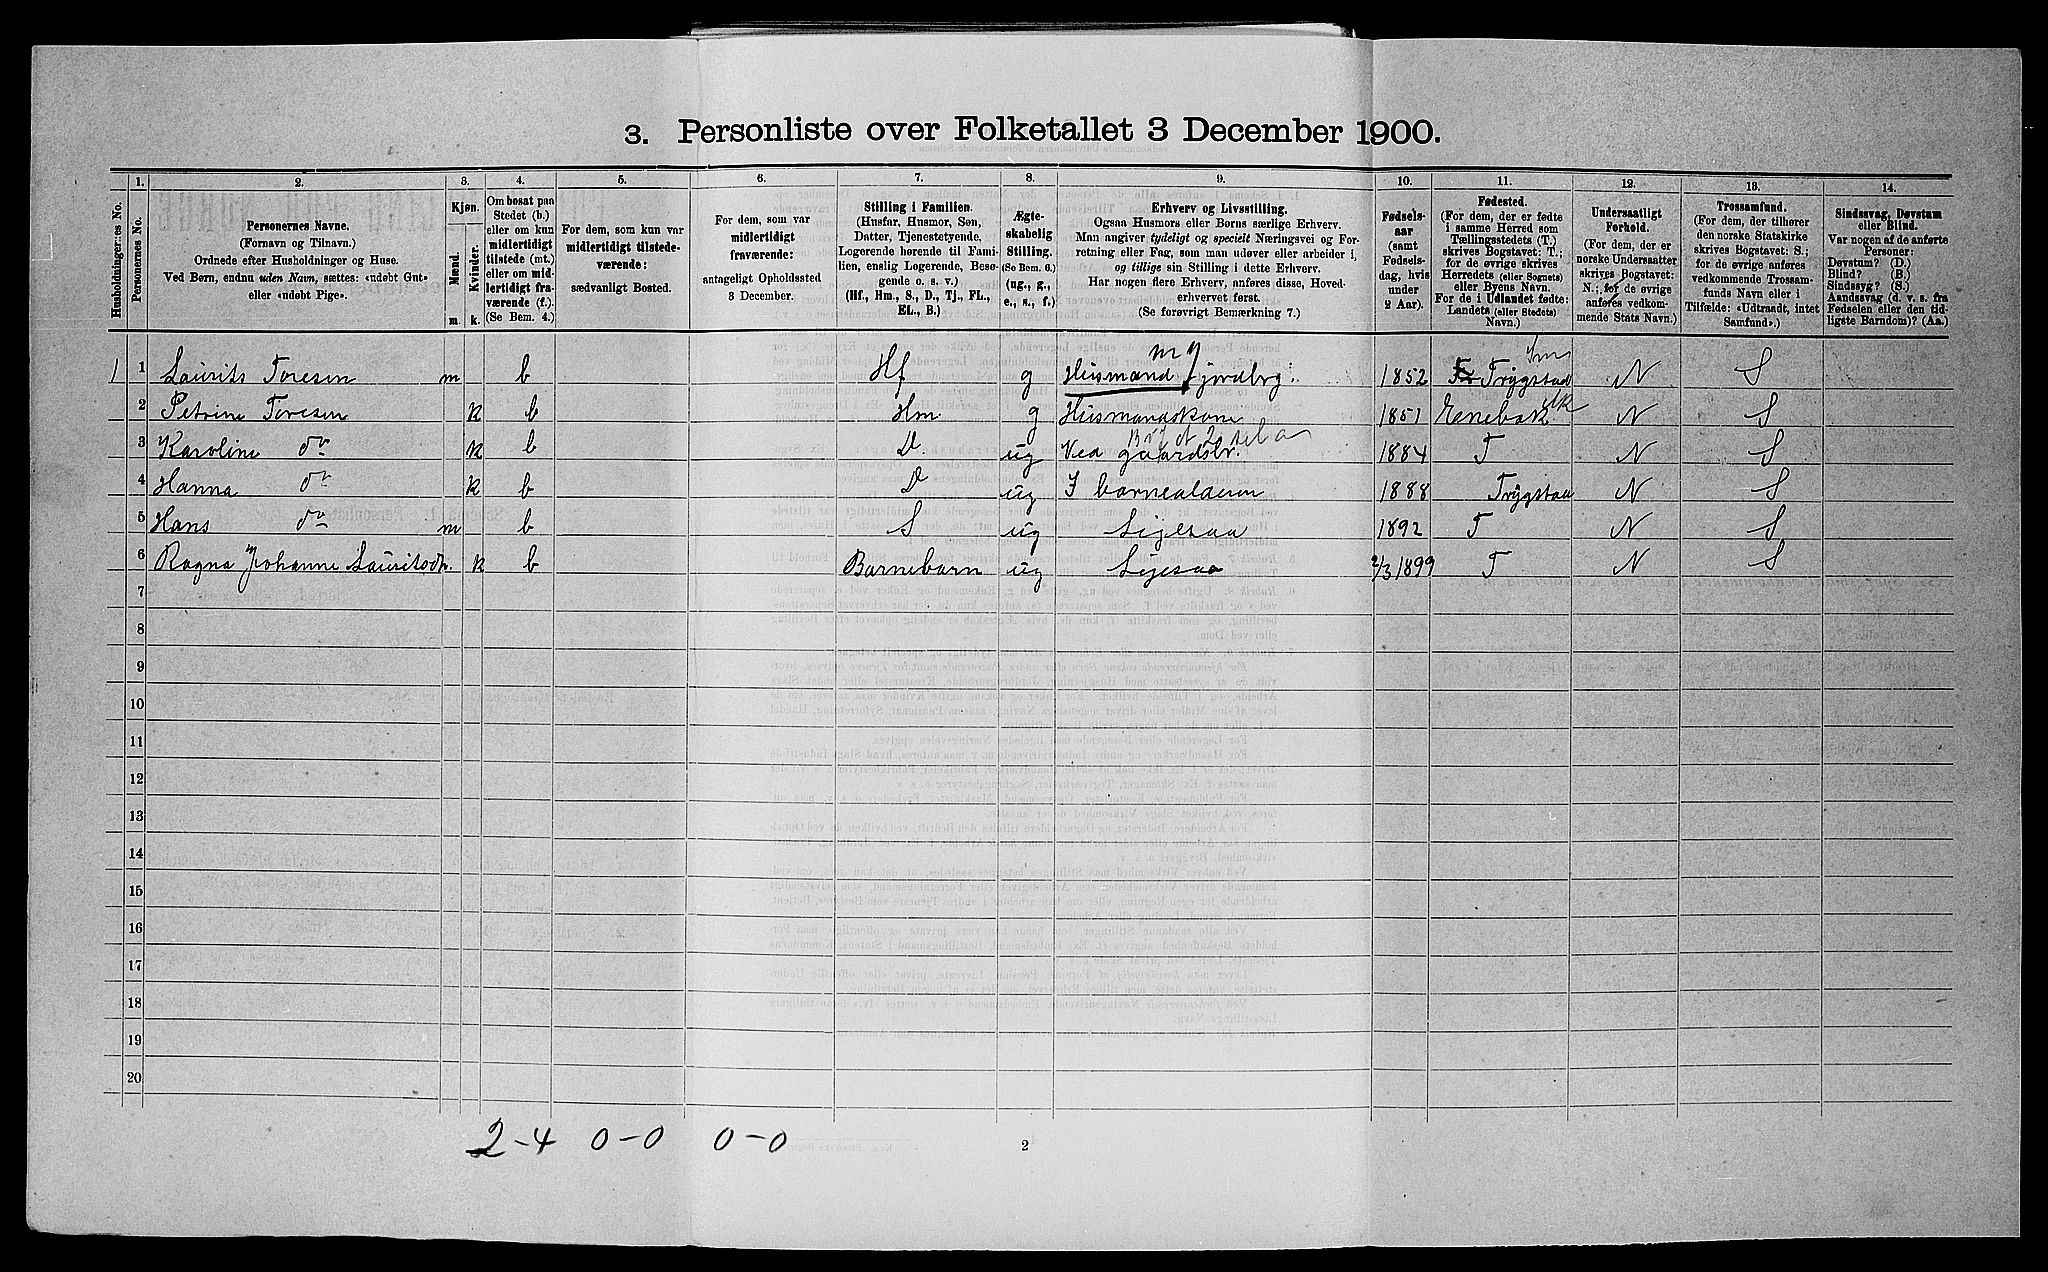 3. Personliste over Folketallet 3 December 1900.
1. 2. 3. 4. 5. 6. 7. 8. 9. 10. 11. 12. 13. 14.
Husholdningernes No.
Personernes No.
Personernes Navne.
(Fornavn og Tilnavn.)
Ordnede efter Husholdninger og Huse.
Ved Børn, endnu uden Navn, sættes: «udøbt Gut»
eller «udøbt Pige».
Kjøn.
Mænd.
Kvinder.
m. k.
Om bosat paa
Stedet (b.)
eller om kun
midlertidigt
tilstede (mt.)
eller om mid-
lertidigt fra-
værende (f.).
(Se Bem. 4.)
For dem, som kun var
midlertidigt tilstede-
værende:
sædvanligt Bosted.
For dem, som var
midlertidigt
fraværende:
antageligt Opholdssted
3 December.
Stilling i Familien.
(Husfar, Husmor, Søn,
Datter, Tjenestetyende,
Logerende hørende til Fami-
lien, enslig Logerende, Besø-
gende o. s. v.)
(Hf., Hm., S., D., Tj., FL.,
EL., B.)
Ægte-
skabelig
Stilling.
(Se Bem. 6.)
(ug., g.,
e., s., f.)
Erhverv og Livsstilling.
Ogsaa Husmors eller Børns særlige Erhverv.
Man angiver tydeligt og specielt Næringsvei og For-
retning eller Fag, som man udøver eller arbeider i,
og tillige sin Stilling i dette Erhverv.
Har nogen flere Erhverv, anføres disse, Hoved-
erhvervet først.
(Se forøvrigt Bemærkning 7.)
Fødsels-
aar
(samt
Fødsels-
dag, hvis
under
2 Aar).
Fødested.
(For dem, der er fødte
i samme Herred som
Tællingsstedets (T.)
skrives Bogstavet: T.;
for de øvrige skrives
Herredets (eller Sognets)
eller Byens Navn.
For de i Udlandet fødte:
Landets (eller Stedets)
Navn.)
Undersaatligt
Forhold.
(For dem, der er
norske Undersaatter
skrives Bogstavet:
N.; for de øvrige
anføres vedkom-
mende Stats Navn.)
Trossamfund.
(For dem, der tilhører
den norske Statskirke
skrives Bogstavet: S.;
for de øvrige anføres
vedkommende Trossam-
funds Navn eller i
Tilfælde: «Udtraadt, intet
Samfund».)
Sindssvag, Døvstum
eller Blind.
Var nogen af de anførte
Personer:
Døvstum? (D.)
Blind? (B.)
Sindssyg? (S.)
Aandssvag (d. v. s. fra
Fødselen eller den tid-
ligste Barndom)? (Aa.)
1 1 Laurits Toresen m b Hf g Husmand Mg jordbrg. 1852 Trygstad N S
2 Petrine Toresen k b Hm. g Husmandskone 1851 Enebak N S
3 Karoline do k b D. ug Ved gaardsbr. 1884 T N S
4 Hanna do k b D ug I barnealderen 1888 Trygstad N S
5 Hans do m b S ug Ligesaa 1892 T N S
6 Ragna Johanne Lauritsdtr. k b Barnebarn ug Ligesaa 2/3 1899 T N S
7
8
9
10
11
12
13
14
15
16
17
18
19
20
2-4 0-0 0-0
2